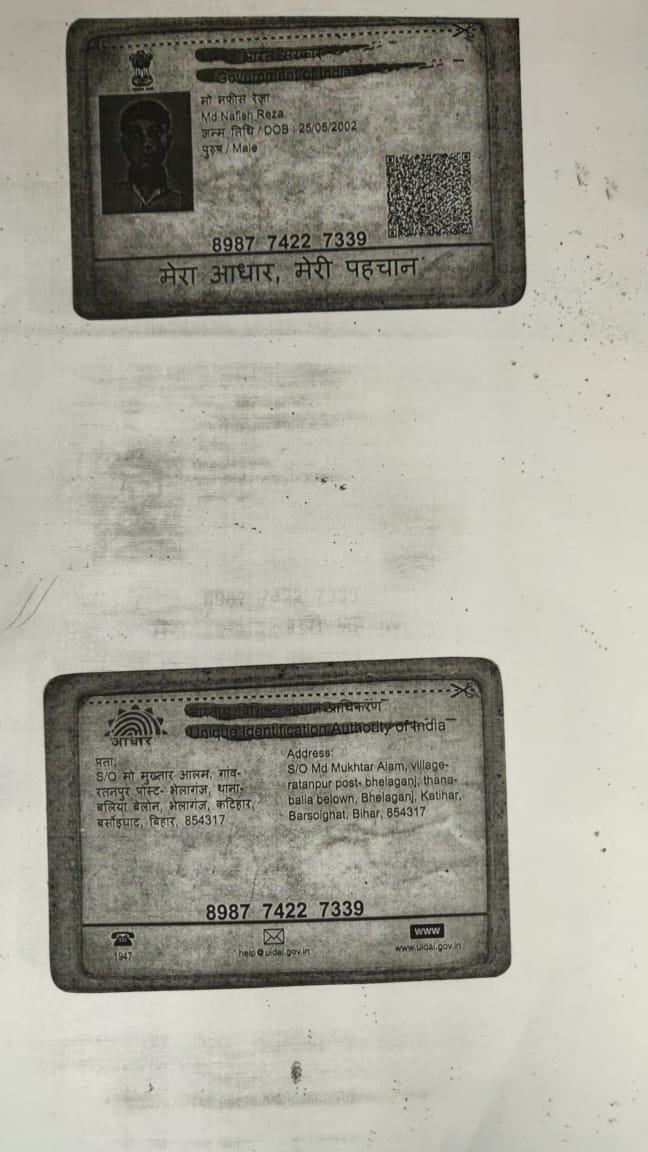 भारत सरकार
Government of India
मो नफीस रेज़ा
Md Nafish Reza
जन्म तिथि / DOB : 25/05/2002
पुरुष / Male
8987 7422 7339
मेरा आधार, मेरी पहचान
पहचान प्राधिकरण
Unique Identification Authority of India
आधार
पता:
S/O मो मुख्तार आलम, गांव-
रतनपुर पोस्ट- भेलागंज, थाना-
बलिया बेलोन, भेलागंज, कटिहार,
बर्सोइघाट, बिहार, 854317
Address:
S/O Md Mukhtar Alam, village-
ratanpur post- bhelaganj, thana-
balia belown, Bhelaganj, Katihar,
Barsoighat, Bihar, 854317
8987 7422 7339
1947
help@uidai.gov.in
www
www.uidai.gov.in